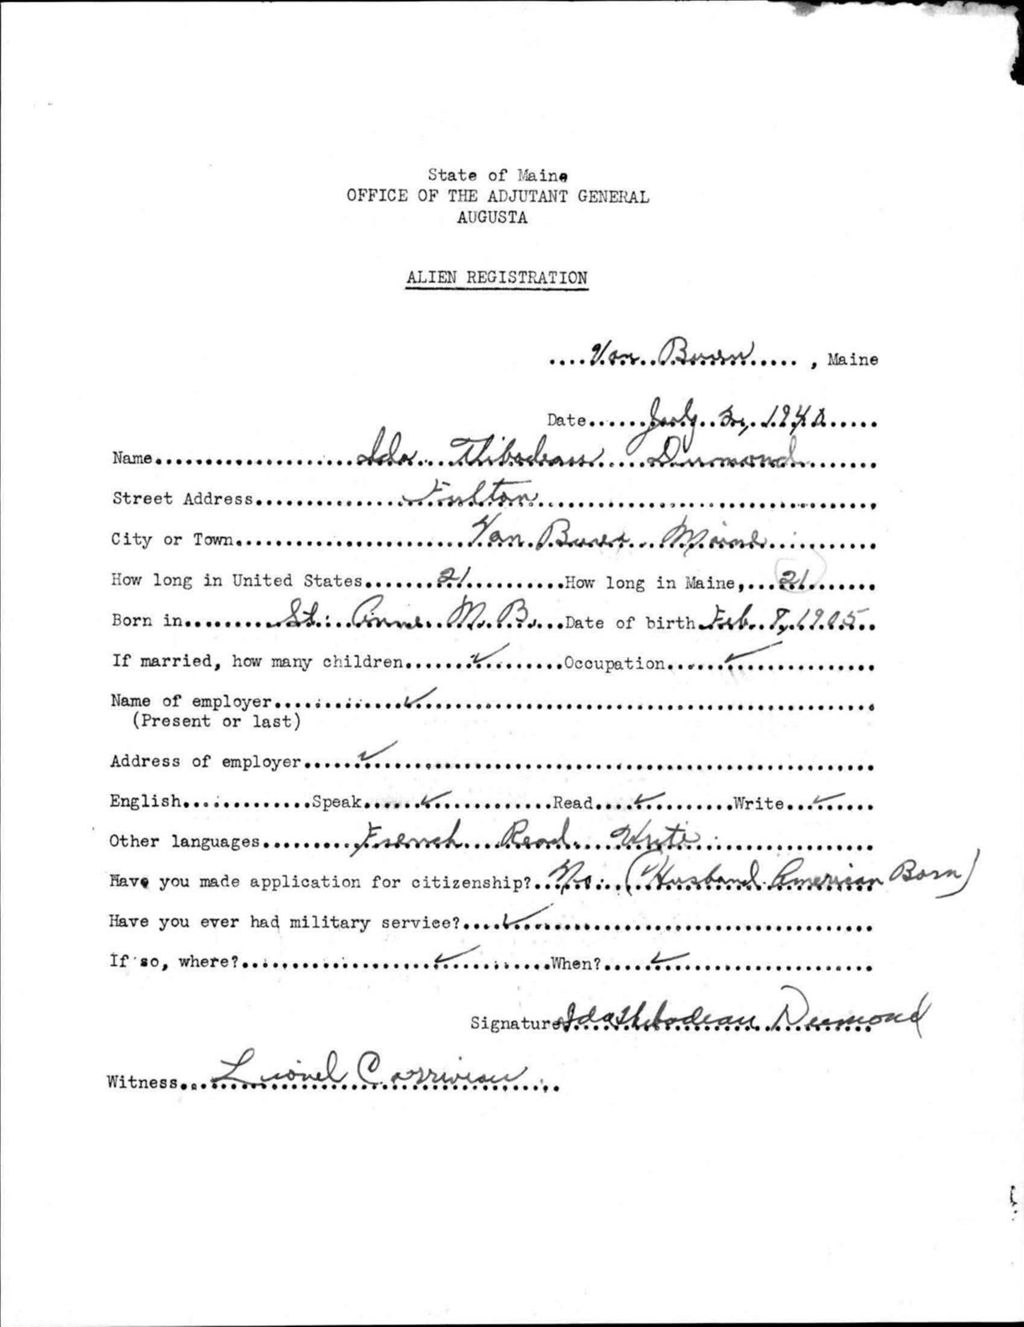 State of Maine
OFFICE OF THE ADJUTANT GENERAL
AUGUSTA
ALIEN REGISTRATION
....Van Buren....., Maine
Date......July 3, 1940......
Name....................Ida Thibodeau Dumond........
Street Address...............Fulton...............................
City or Town......................Van Buren Maine...........
How long in United States.......21..........How long in Maine,...21........
Born in.........St. Anne N.B....Date of birth Feb. 8, 1905..
If married, how many children......✓........Occupation......✓..............
Name of employer.............✓.............................................
(Present or last)
Address of employer......✓.................................................
English.............Speak......✓............Read....✓.........Write...✓......
Other languages.........French Read Write..................
Have you made application for citizenship?..No. (Husband American Born)
Have you ever had military service?....✓...................................
If so, where?....................✓..........When?.....✓.....................
Signature Ida Thibodeau Dumond
Witness...Lionel Corriveau....